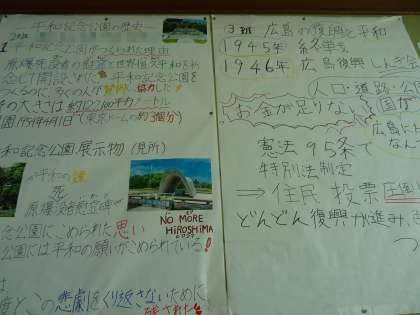 平和記念公園の歴史
2班
平和記念公園がつくられた理由
原爆死没者の慰霊と世界恒久平和を祈
念して開設された。平和記念公園を
つくるのに、多くの人が協力した
大きさは約122100平方メートル
園 1954年4月1日 (東京ドームの約3個分)
和記念公園展示物(見所)
平和の
原爆死没者慰霊碑
念公園にこめられた思い
公園には平和の願いがこめられている!
NO MORE
HIROSHIMA
この悲劇をくり返さないために
残された
3班 広島の復興と平和
1945年 終戦
1946年 広島復興
人口・道路・公
お金が足りない
国が
広島に
なん
憲法95条で
特別法制定
⇒住民投票
どんどん復興が進み